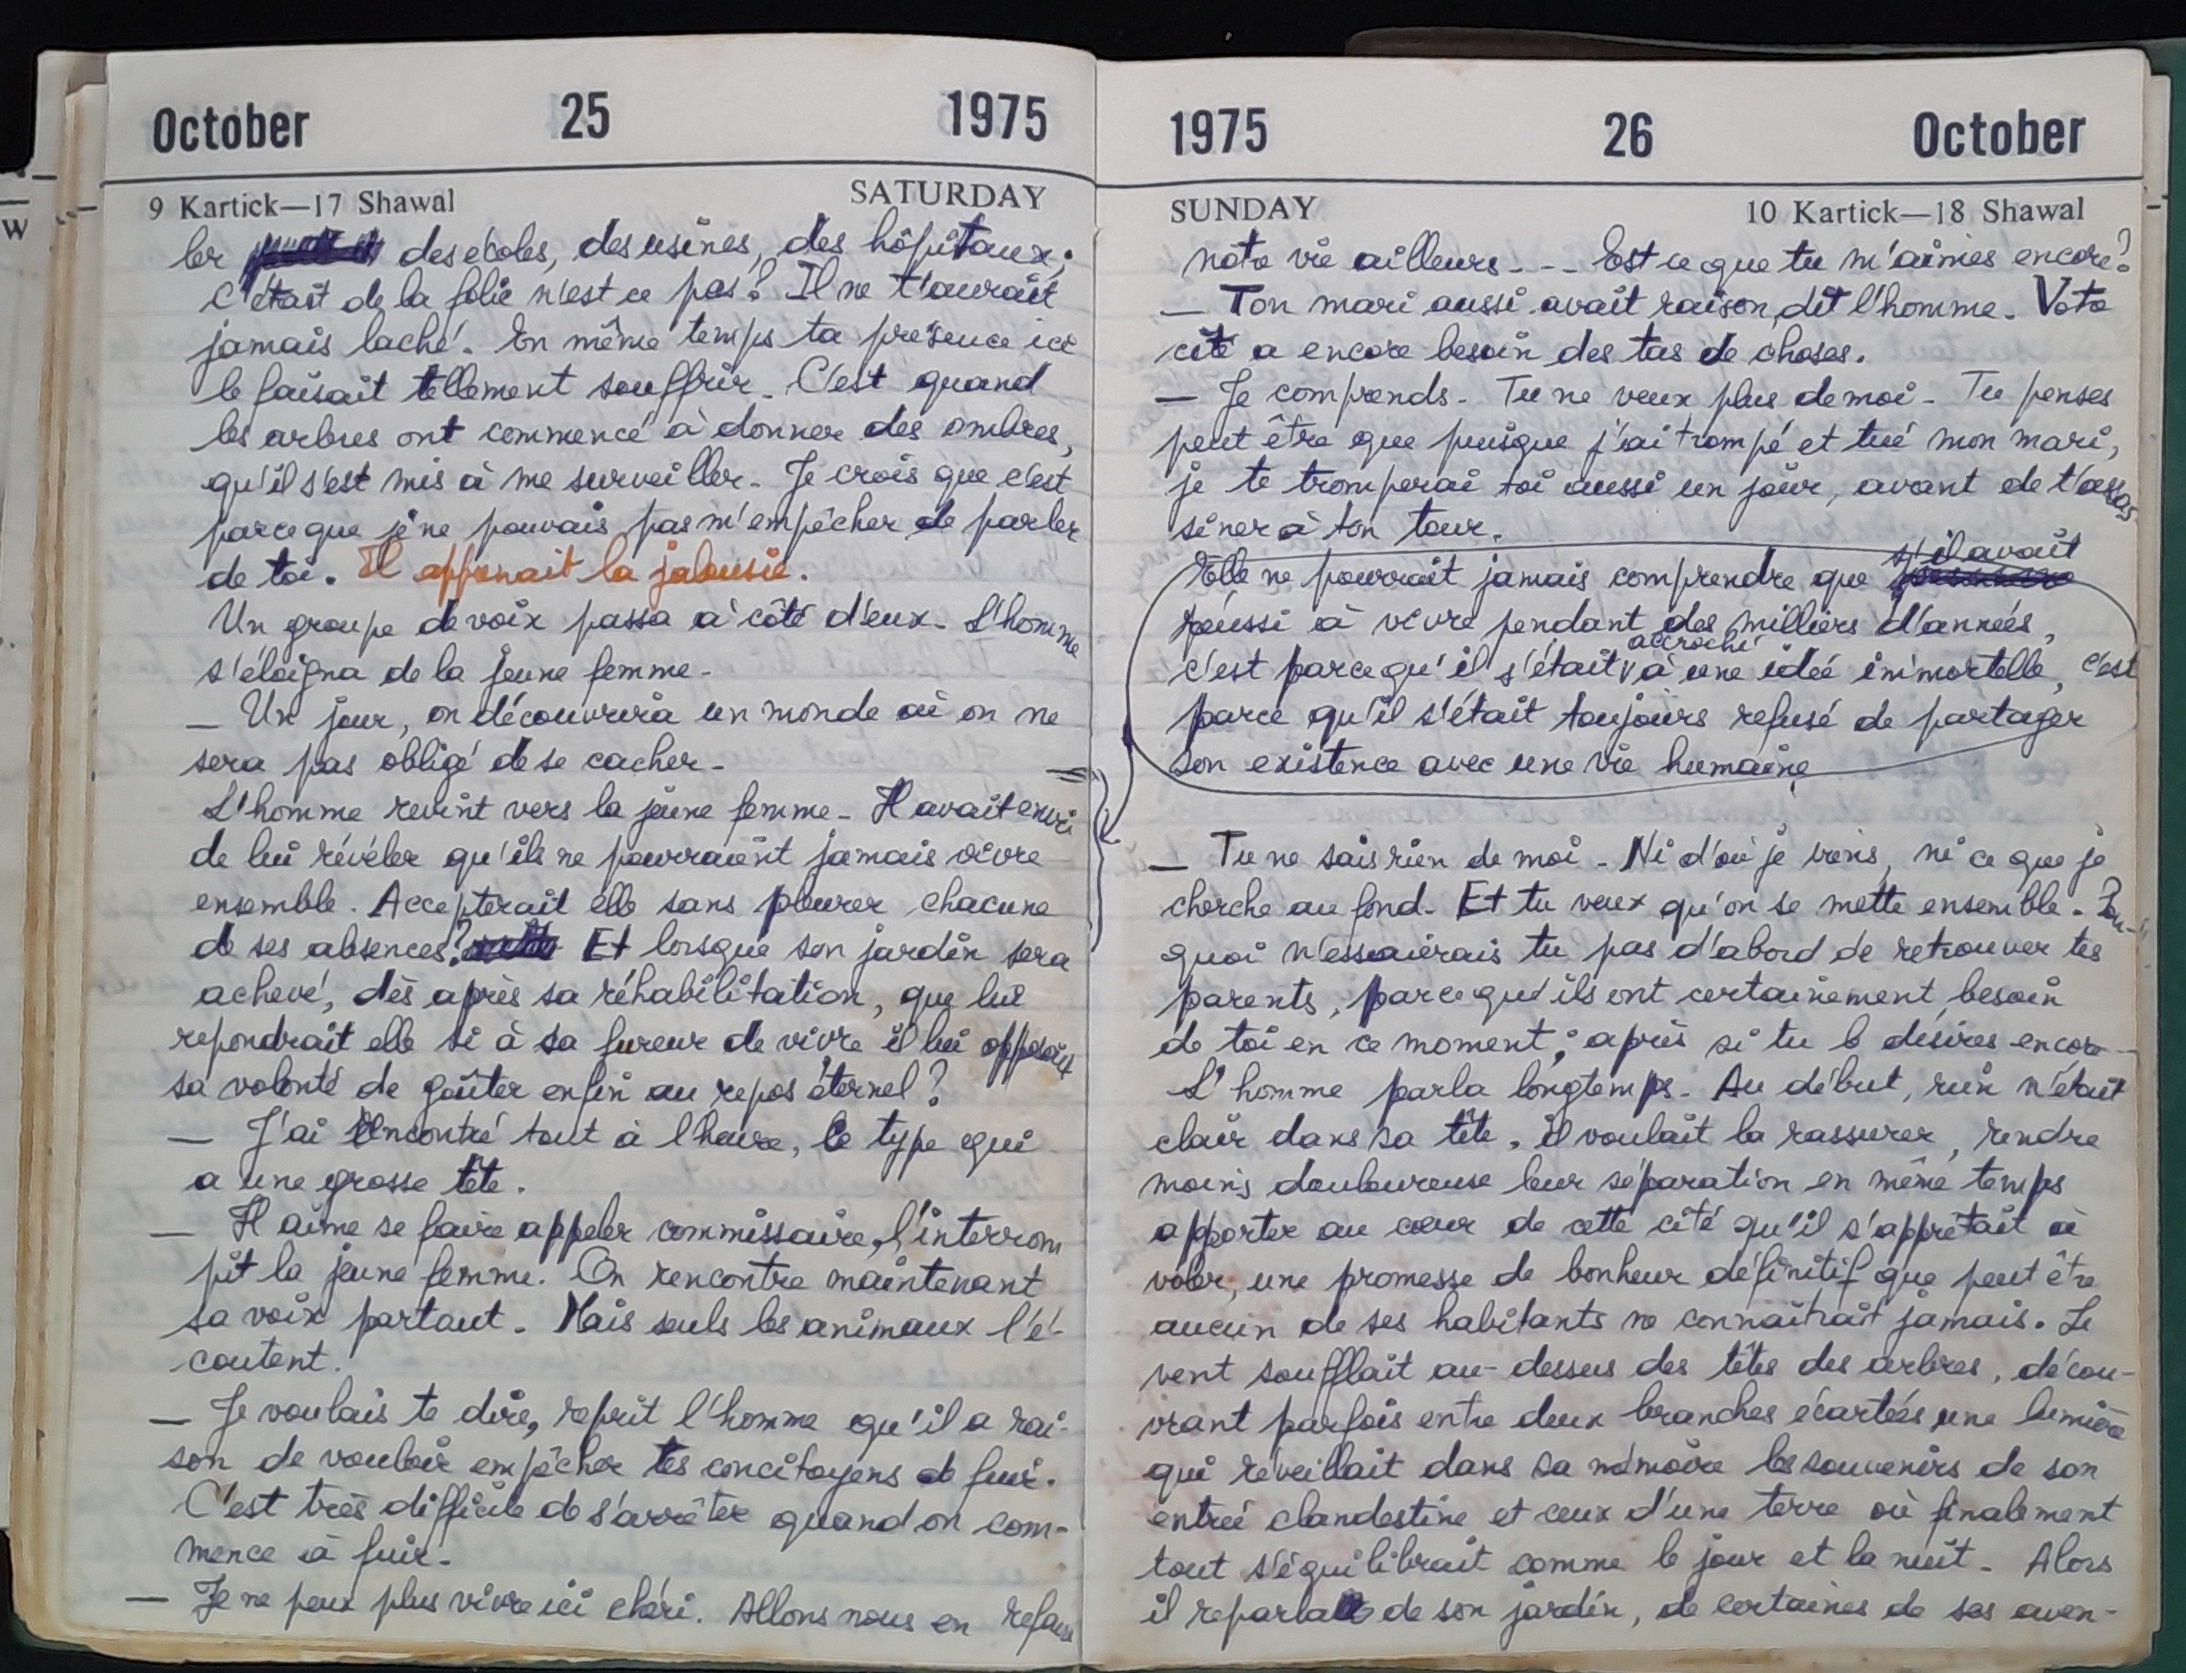 October 25 1975
9 Kartick—17 Shawal SATURDAY
ler des écoles, des usines, des hôpitaux;
C'était de la folie n'est ce pas? Il ne t'aurait
jamais laché. En même temps ta présence ici
le faisait tellement souffrir. C'est quand
les arbres ont commencé à donner des ombres,
qu'il s'est mis à me surveiller. Je crois que c'est
parceque je ne pouvais pas m'empêcher de parler
de toi. Il apprenait la jalousie.
Un groupe de voix passa à côté d'eux. L'homme
s'éloigna de la jeune femme.
— Un jour, on découvrira un monde où on ne
sera pas obligé de se cacher.
L'homme revint vers la jeune femme. Il avait envi
de lui révéler qu'ils ne pourraient jamais vivre
ensemble. Accepterait elle sans pleurer chacune
de ses absences? Et lorsque son jardin sera
achevé, dès après sa réhabilitation, que lui
repondrait elle si à sa fureur de vivre il lui opposait
sa volonté de goûter enfin au repos éternel?
— J'ai rencontré tout à l'heure, le type qui
a une grosse tête.
— Il aime se faire appeler commissaire, l'interrom
pit la jeune femme. On rencontre maintenant
sa voix partout. Mais seuls les animaux l'é-
coutent.
— Je voulais te dire, reprit l'homme qu'il a rai-
son de vouloir empêcher tes concitoyens de fuir.
C'est très difficile de s'arrêter quand on com-
mence à fuir.
— Je ne peux plus vivre ici chéri. Allons nous en refaire
1975 26 October
SUNDAY 10 Kartick—18 Shawal
notre vie ailleurs - - - Est ce que tu m'aimes encore?
— Ton mari aussi avait raison, dit l'homme. Votre
cité a encore besoin des tas de choses.
— Je comprends. Tu ne veux plus de moi. Tu penses
peut être que puisque j'ai trompé et tué mon mari,
je te tromperai toi aussi un jour, avant de t'assas
siner à ton tour.
Elle ne pourrait jamais comprendre que s'il avait
réussi à vivre pendant des milliers d'années,
c'est parce qu'il s'était accroché à une idée immortelle, c'est
parce qu'il s'était toujours refusé de partager
son existence avec une vie humaine
— Tu ne sais rien de moi. Ni d'où je viens, ni ce que je
cherche au fond. Et tu veux qu'on se mette ensemble. Pour-
quoi n'essaierais tu pas d'abord de retrouver tes
parents, parce qu'ils ont certainement besoin
de toi en ce moment; après si tu le désires encore -
L'homme parla longtemps. Au début, rien n'était
clair dans sa tête, il voulait la rassurer, rendre
moins douloureuse leur séparation en même temps
apporter au cœur de cette cité qu'il s'apprêtait à
voler, une promesse de bonheur définitif que peut être
aucun de ses habitants ne connaîtrait jamais. Le
vent soufflait au-dessus des têtes des arbres, décou-
vrant parfois entre deux branches écartées une lumière
qui réveillait dans sa mémoire les souvenirs de son
entrée clandestine et ceux d'une terre où finalement
tout s'équilibrait comme le jour et la nuit. Alors
il reparla de son jardin, de certaines de ses aven-